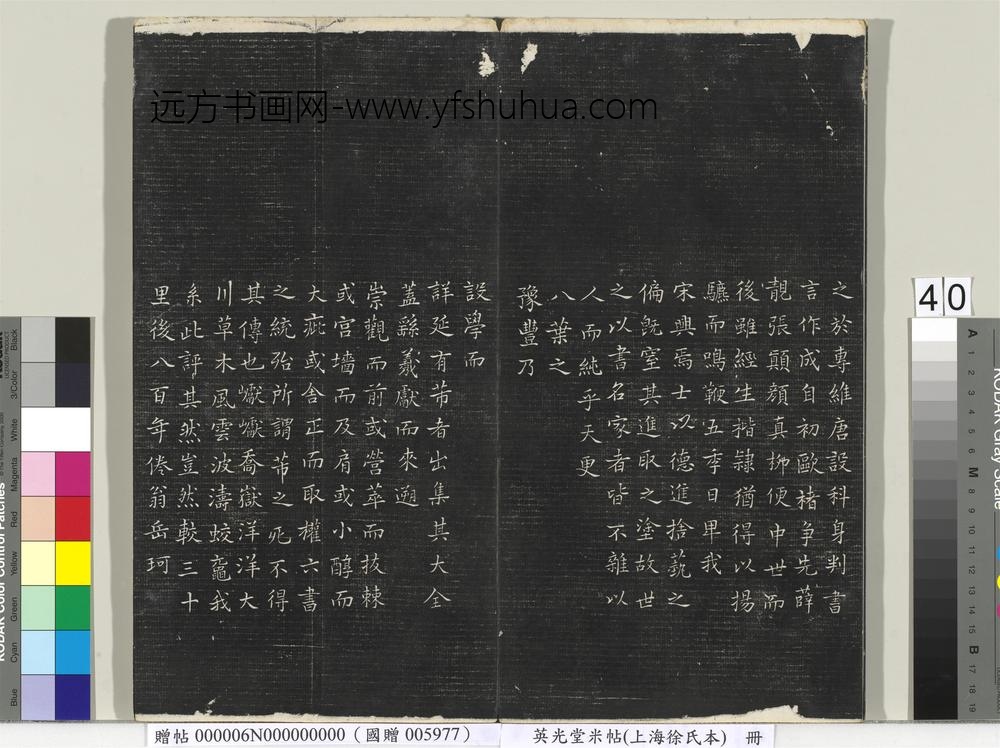 远方书画网-www.yfshuhua.com
之於專維唐設科身判書
言作成自初歐褚爭先薛
靚張顛顏真柳便中世而
後雖經生揩隸猶得以揚
驪而鳴鞭五季日卑我
宋興焉士以德進捨藝之
偏既窒其進取之塗故世
之以書名家者皆不雜以
人而純乎天更
八葉之
豫豐乃
設學而
詳延有芾者出集其大全
蓋繇羲獻而來遡
崇觀而前或營萃而拔棘
或宮墻而及肩或小醇而
大疵或舍正而取權六書
之統殆所謂芾之死不得
其傳也巘巘喬嶽洋洋大
川草木風雲波濤蛟鼉我
系此評其然豈然較三十
里後八百年倦翁岳珂
40
贈帖 000006N000000000（國贈 005977）
英光堂米帖(上海徐氏本) 冊
KODAK Color Control Patches
Blue
Cyan
Green
Yellow
Red
Magenta
White
3/Color
Black
KODAK Gray Scale
A 1 2 3 4 5 6 M 8 9 10 11 12 13 14 15 B 17 18 19